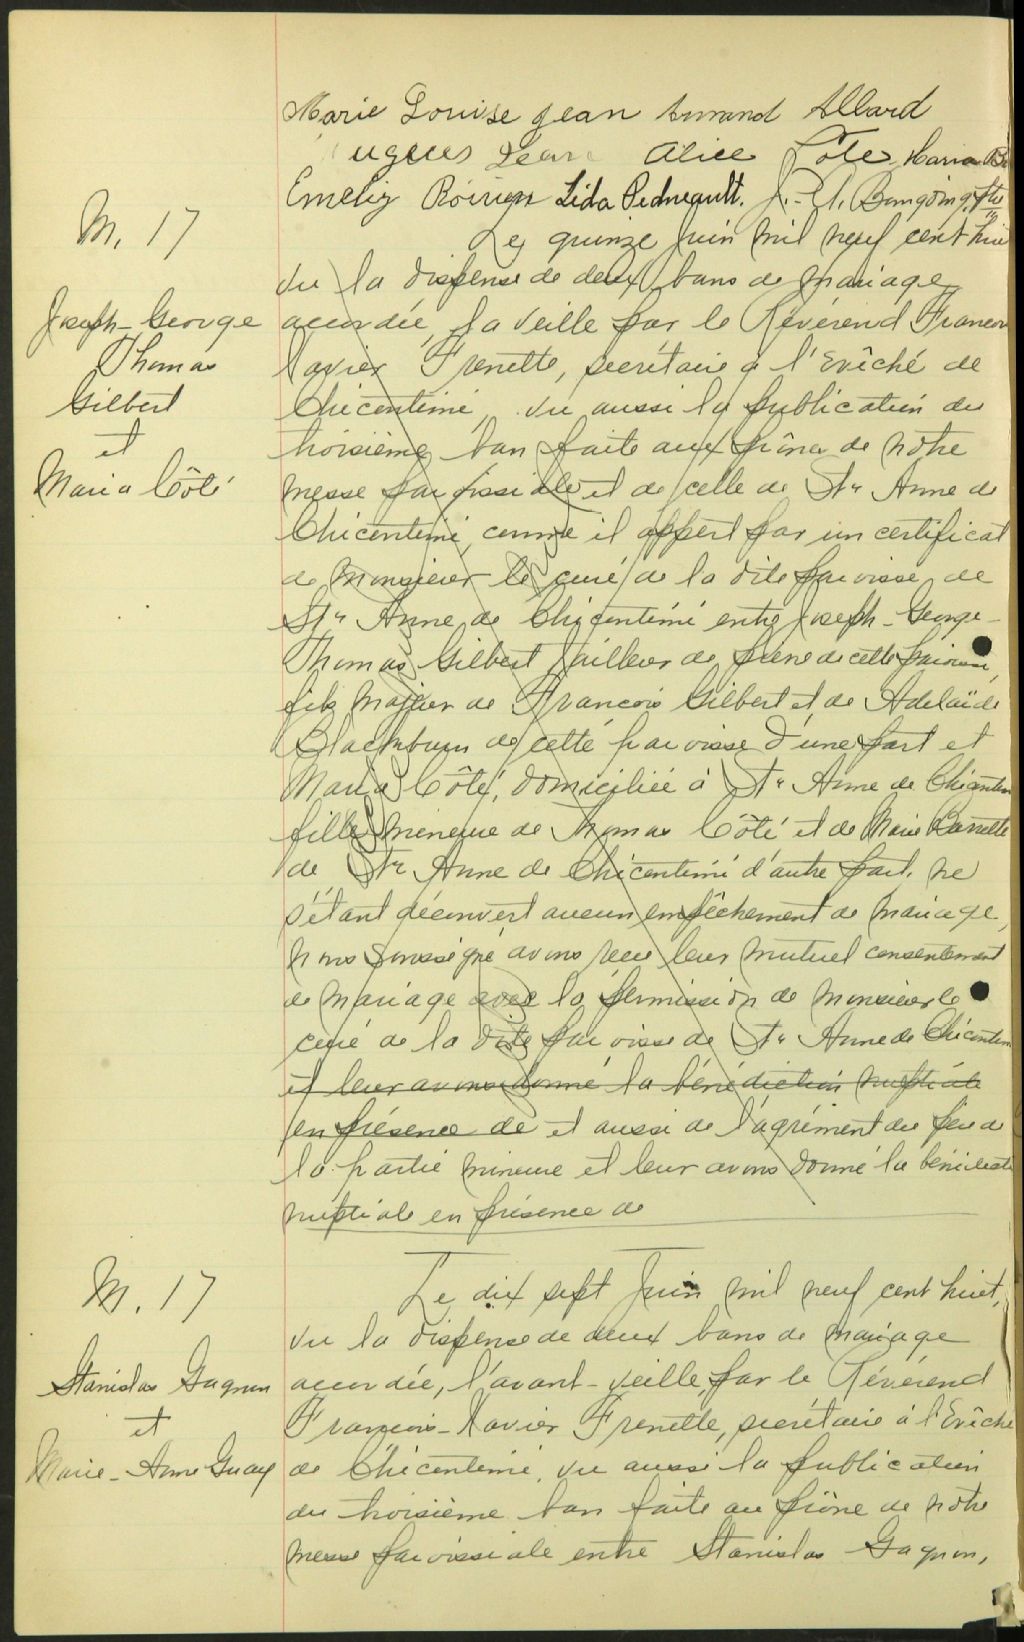 Marie Louise Jean Armand Allard
ugues Jean Alice Côté Maria
Lida Pedneault. J.-A. Bourgoing, Ptre
M. 17
Joseph-George
Thomas
Gilbert
et
Maria Côté
Le quinze Juin mil neuf cent huit
vu la dispense de deux bans de mariage
accordée, la veille par le Révérend François
Xavier Frenette, secrétaire à l'Evêché de
Chicoutimi, vu aussi la publication du
troisième ban faite aux prônes de notre
messe paroissiale et de celle de Ste Anne de
Chicoutimi, comme il appert par un certificat
de Monsieur le curé de la dite paroisse de
Ste Anne de Chicoutimi entre Joseph-George-
Thomas Gilbert tailleur de pierre de cette paroisse,
fils majeur de François Gilbert et de Adélaïde
Blackburn de cette paroisse d'une part et
Maria Côté, domiciliée à Ste Anne de Chicoutimi
fille mineure de Thomas Côté et de Marie
de Ste Anne de Chicoutimi d'autre part, ne
s'étant découvert aucun empêchement de mariage,
nous soussigné avons reçu leur mutuel consentement
de mariage avec la permission de Monsieur le
curé de la dite paroisse de Ste Anne de Chicoutimi
et leur avons donné la bénédiction nuptiale
en présence de et aussi de l'agrément du père de
la partie mineure et leur avons donné la bénédiction
nuptiale en présence de
M. 17
Stanislas Gagnon
et
Marie-Anne Guay
Le dix sept Juin mil neuf cent huit,
vu la dispense de deux bans de mariage
accordée, l'avant-veille, par le Révérend
François-Xavier Frenette, secrétaire à l'Evêché
de Chicoutimi, vu aussi la publication
du troisième ban faite au prône de notre
messe paroissiale entre Stanislas Gagnon,